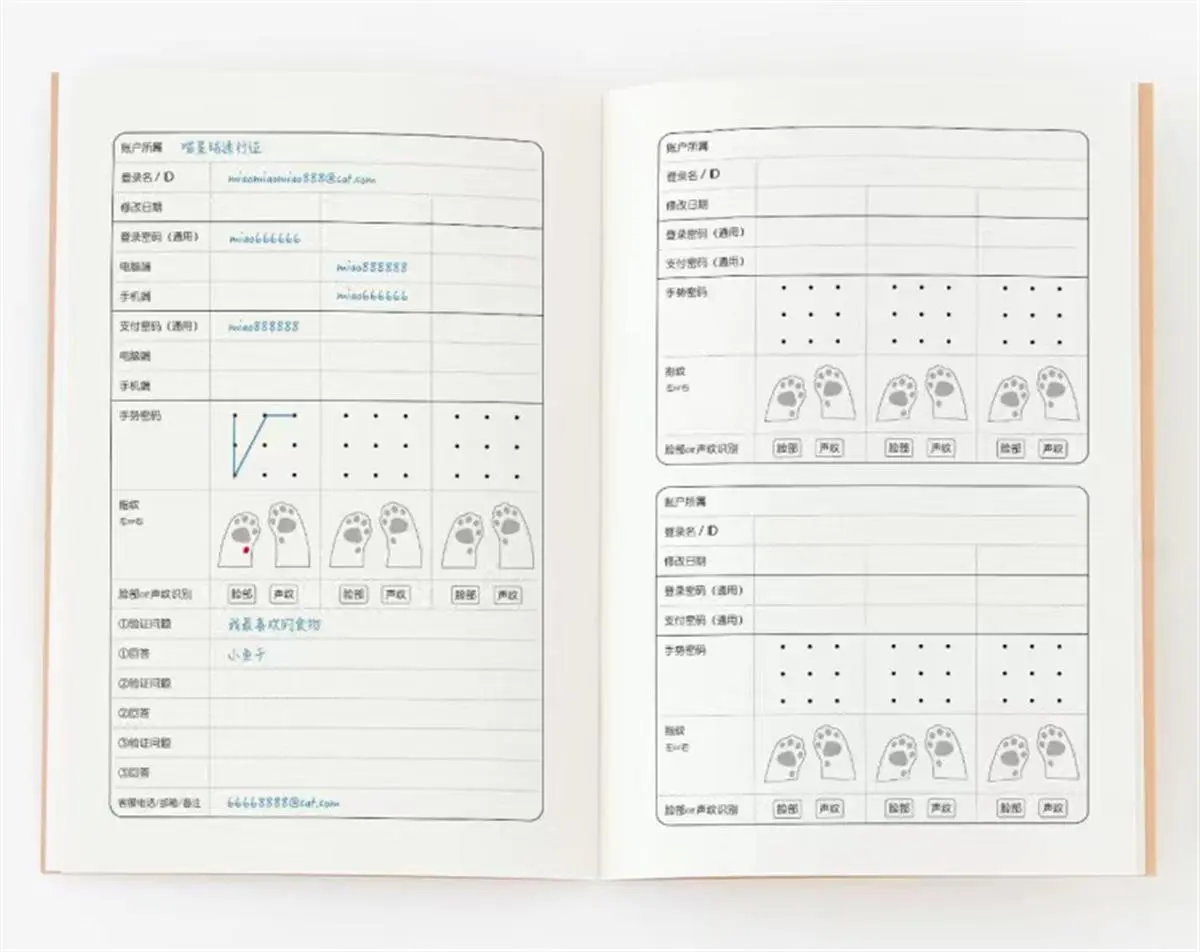 账户所属 喵星球通行证
登录名 / ID miaomiaomiao888@cat.com
修改日期
登录密码（通用） miao666666
电脑端 miao888888
手机端 miao666666
支付密码（通用） miao888888
电脑端
手机端
手势密码
指纹
左⇔右
脸部or声纹识别 脸部 声纹 脸部 声纹 脸部 声纹
①验证问题 我最喜欢的食物
①回答 小鱼干
②验证问题
②回答
③验证问题
③回答
客服电话/邮箱/备注 66668888@cat.com
账户所属
登录名 / ID
修改日期
登录密码（通用）
支付密码（通用）
手势密码
指纹
左⇔右
脸部or声纹识别 脸部 声纹 脸部 声纹 脸部 声纹
账户所属
登录名 / ID
修改日期
登录密码（通用）
支付密码（通用）
手势密码
指纹
左⇔右
脸部or声纹识别 脸部 声纹 脸部 声纹 脸部 声纹